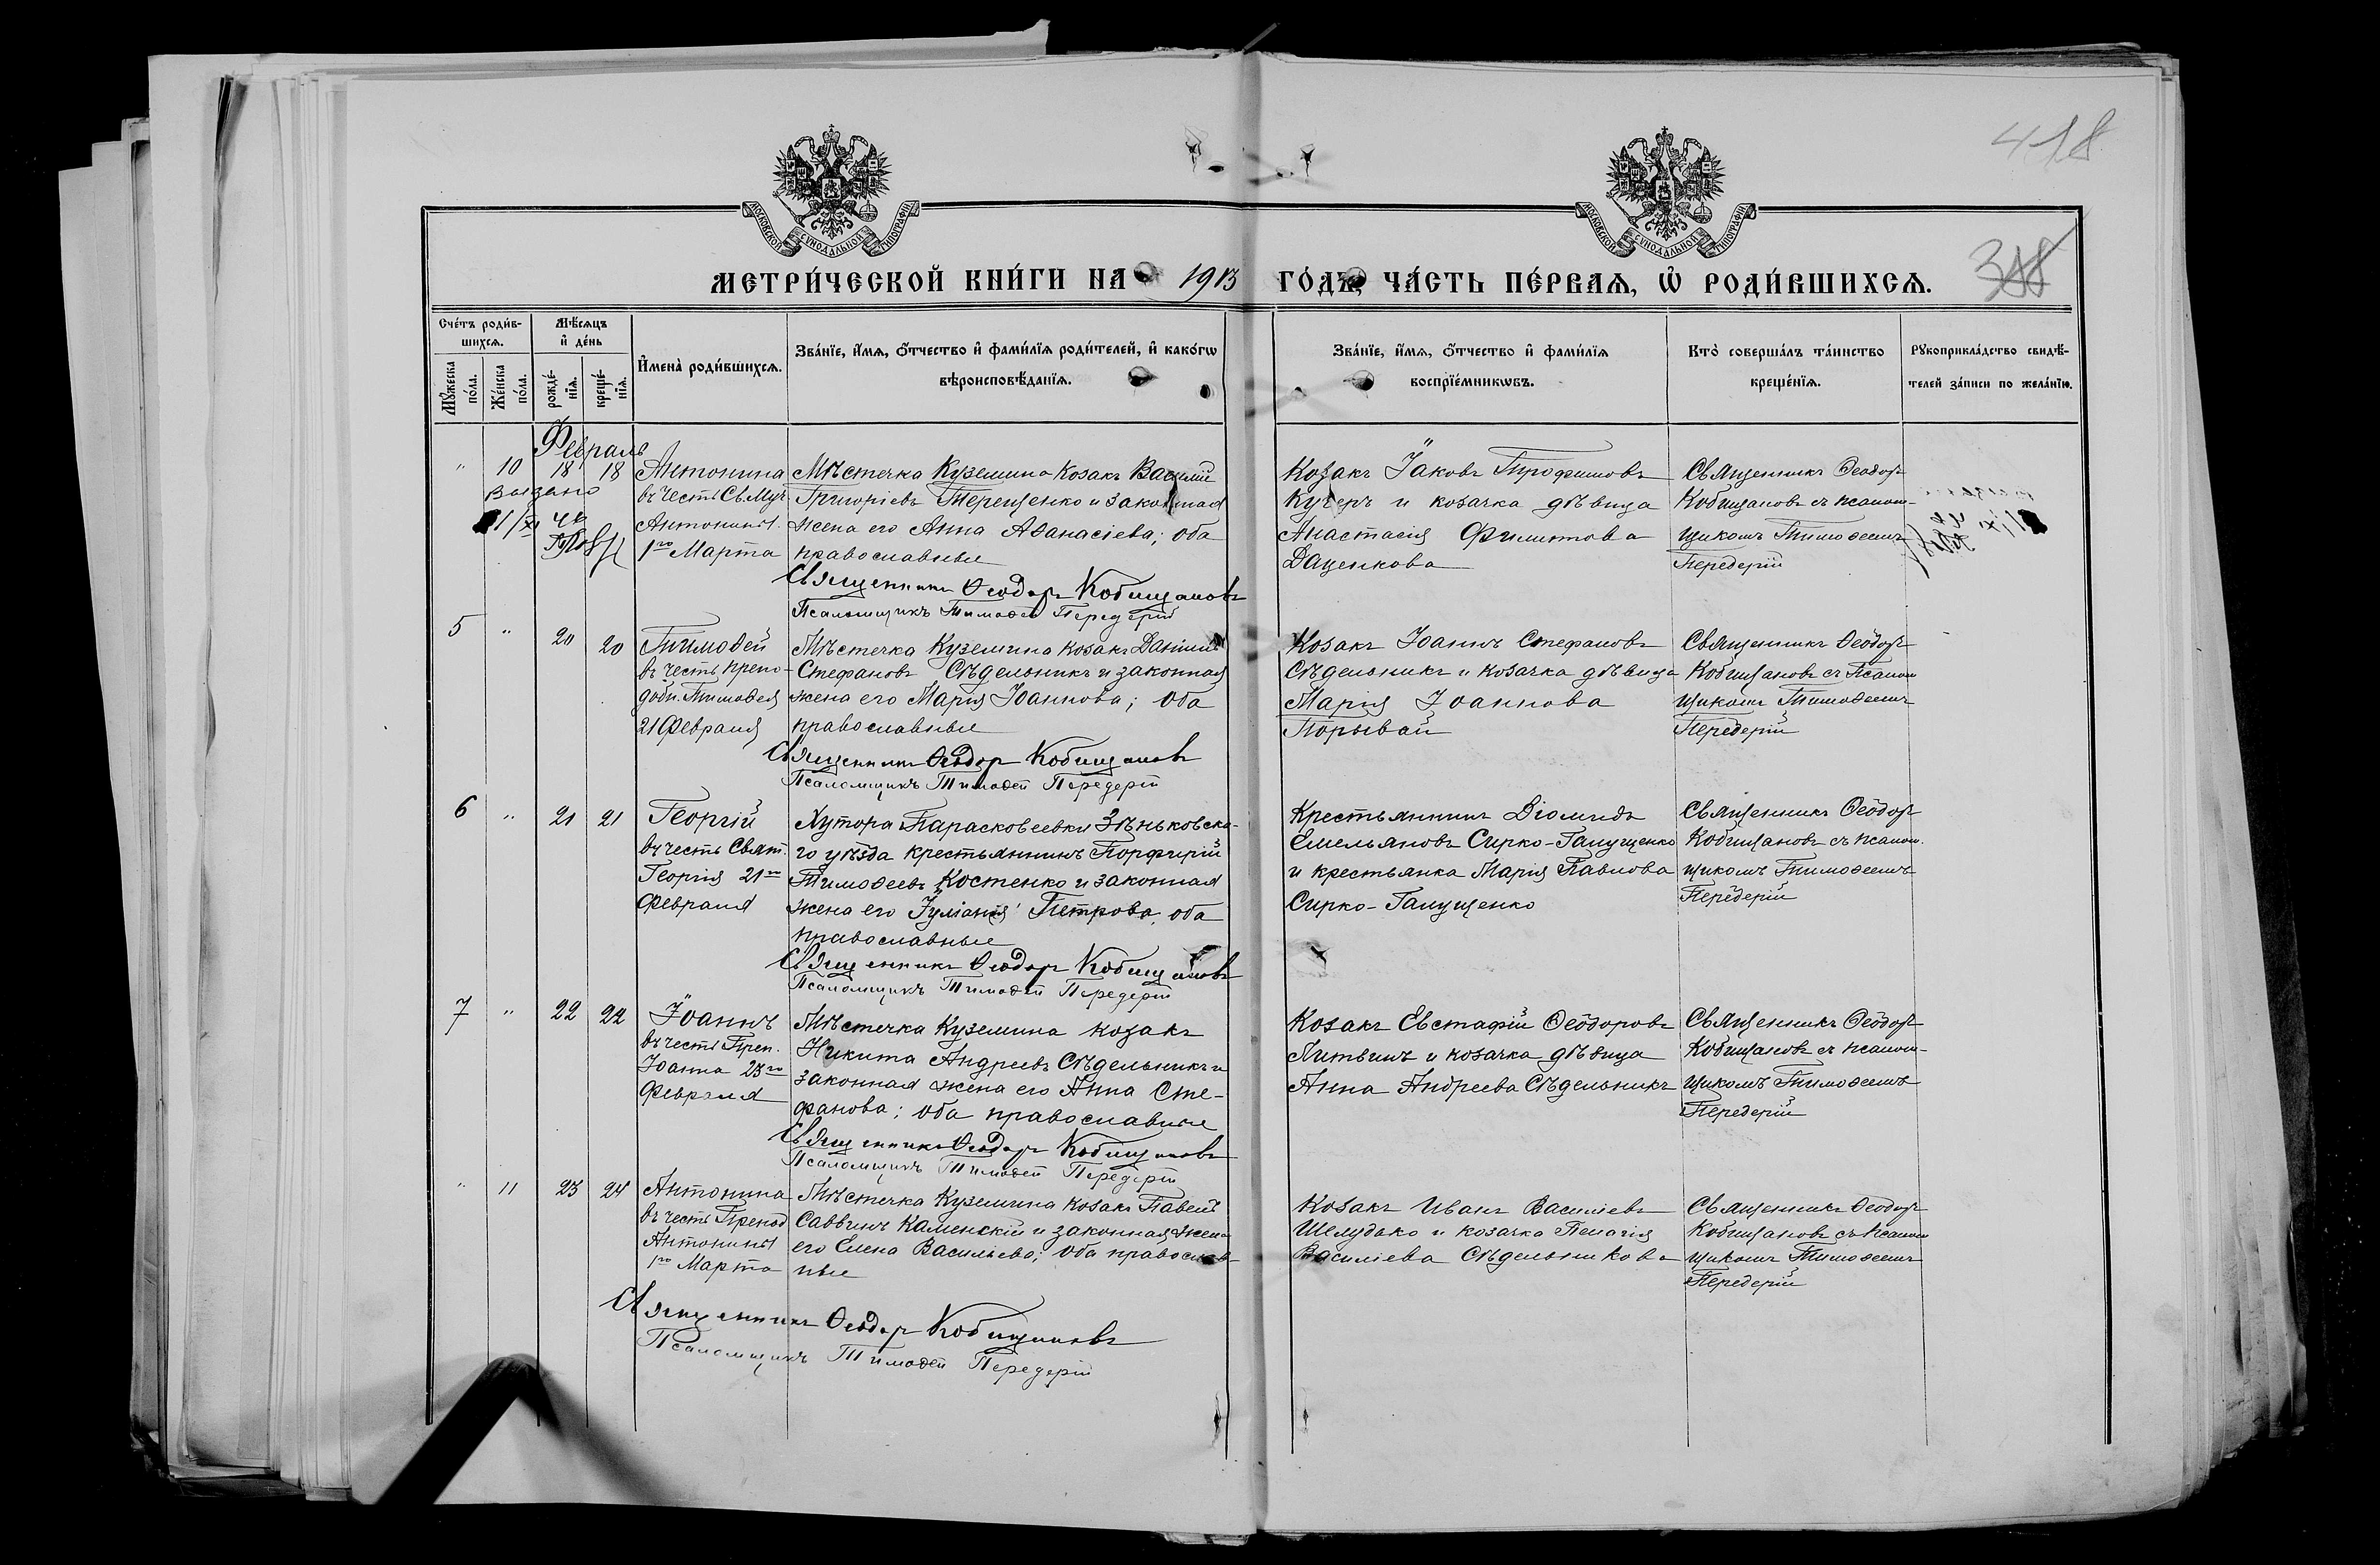 418
МОСКОВСКОЙ СѴНОДАЛЬНОЙ ТИПОГРАФІИ
МОСКОВСКОЙ СѴНОДАЛЬНОЙ ТИПОГРАФІИ
МЕТРИ́ЧЕСКОЙ КНИ́ГИ НА 1913 ГО́ДЪ, ЧА́СТЬ ПЕ́РВАЯ, Ѽ РОДИ́ВШИХСЯ.
Сче́тъ роди́вшихся.
Мѣ́сяцъ и҆ де́нь
Мꙋ́жеска по́ла.
Же́нска по́ла.
рожде́нїя.
креще́нїя.
И҆мена̀ роди́вшихся.
Зва́нїе, и҆́мя, ѻ҆́тчество и҆ фами́лїя роди́телей, и҆ како́гѡ
вѣроисповѣ́данїя.
Зва́нїе, и҆́мя, ѻ҆́тчество и҆ фами́лїя
воспрїе́мникѡвъ.
Кто̀ соверша́лъ та́инство
креще́нїя.
Рꙋкоприкла́дство свидѣ́-
телей за́писи по жела́нїю.
Февраль
" 10 18 18
Выдано
Антонина
въ честь Св. Муч.
Антонины.
1го Марта
Мѣстечка Куземина Козакъ Василій
Григоріевъ Терещенко и законная
жена его Анна Аѳанасіева; оба
православные
Священникъ Ѳеодоръ Кобищановъ
Псаломщикъ Тимоѳей Передерій
Козакъ Іаковъ Трофимовъ
Кучеръ и козачка дѣвица
Анастасія Филиппова
Даценкова
Священникъ Ѳеодоръ
Кобищановъ съ псалом-
щикомъ Тимоѳеемъ
Передерій
5 " 20 20
Тимоѳей
въ честь препо-
добн. Тимоѳея
21 Февраля
Мѣстечка Куземина козакъ Даніилъ
Стефановъ Сѣдельникъ и законная
жена его Марія Іоаннова; оба
православные
Священникъ Ѳеодоръ Кобищановъ
Псаломщикъ Тимоѳей Передерій
Козакъ Іоаннъ Стефановъ
Сѣдельникъ и козачка дѣвица
Марія Іоаннова
Порывай
Священникъ Ѳеодоръ
Кобищановъ съ Псалом
щикомъ Тимоѳеемъ
Передерій
6 " 21 21
Георгій
въ честь Свят.
Георгія 21го
Февраля
Хутора Парасковеевки Зѣньковска-
го уѣзда крестьянинъ Порфирій
Тимоѳеевъ Костенко и законная
жена его Іуліанія Петрова, оба
православные
Священникъ Ѳеодоръ Кобищановъ
Псаломщикъ Тимоѳей Передерій
Крестьянинъ Діомидъ
Емельяновъ Сирко-Галущенко
и крестьянка Марія Павлова
Сирко-Галущенко
Священникъ Ѳеодоръ
Кобищановъ съ псалом.
щикомъ Тимоѳеемъ
Передерій
7 " 22 24
Іоаннъ
въ честь Преп.
Іоанна 23го
Февраля
Мѣстечка Куземина козакъ
Никита Андреевъ Сѣдельникъ и
законная жена его Анна Сте-
фанова; оба православные
Священникъ Ѳеодоръ Кобищановъ
Псаломщикъ Тимоѳей Передерій
Козакъ Евстафій Ѳеодоровъ
Литвинъ и козачка дѣвица
Анна Андреева Сѣдельникъ
Священникъ Ѳеодоръ
Кобищановъ съ псалом-
щикомъ Тимоѳеемъ
Передерій
" 11 23 24
Антонина
въ честь Препод
Антонины
1го Марта
Мѣстечка Куземина козакъ Павелъ
Саввинъ Каменскій и законная жена
его Елена Васильева; оба православ-
ные
Священникъ Ѳеодоръ Кобищановъ
Псаломщикъ Тимоѳей Передерій
Козакъ Иванъ Василіевъ
Шелудько и козачка Пелагія
Василіева Сѣдельникова
Священникъ Ѳеодоръ
Кобищановъ съ Псалом
щикомъ Тимоѳеемъ
Передерій